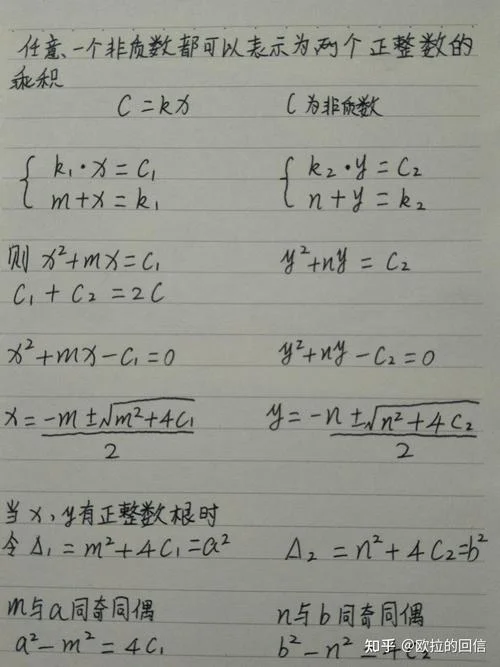 任意一个非质数都可以表示为两个正整数的
乘积
C = kx    C 为非质数
{ k₁·x = C₁    { k₂·y = C₂
{ m+x = k₁    { n+y = k₂
则 x²+mx = C₁    y²+ny = C₂
C₁ + C₂ = 2C
x²+mx-C₁=0    y²+ny-C₂=0
x = (-m±√(m²+4C₁))/2    y = (-n±√(n²+4C₂))/2
当 x, y有正整数根时
令 Δ₁ = m²+4C₁=a²    Δ₂ = n²+4C₂=b²
m与a同奇同偶    n与b同奇同偶
a²-m² = 4C₁    b²-n² = 4C₂
知乎 @欧拉的回信